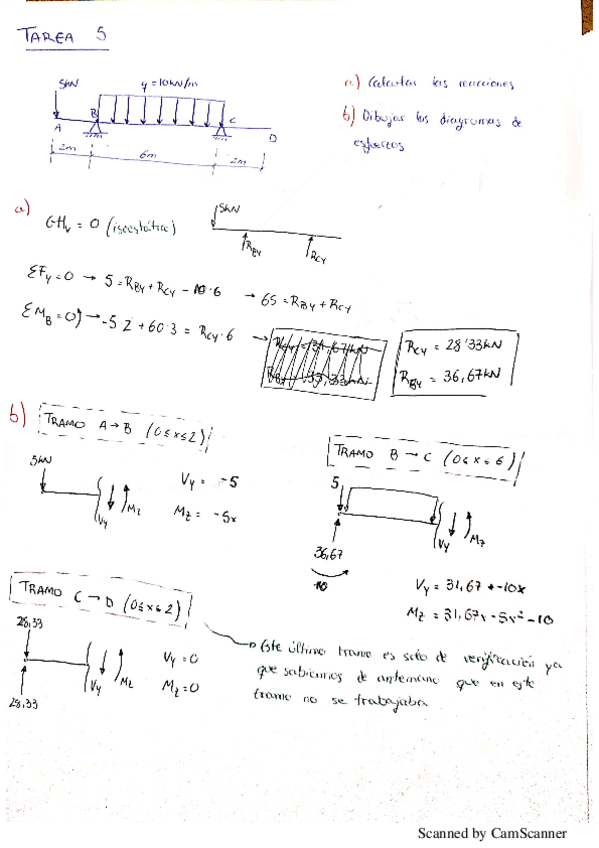 TAREA 5
5kN
q = 10kN/m
A
B
C
D
2m
6m
2m
a) Calcular las reacciones
b) Dibujar los diagramas de
esfuerzos
a)
GH = 0 (isoestático)
5kN
RBY
RCY
ΣFy = 0 → 5 = RBY + RCY - 10·6 → 65 = RBY + RCY
ΣMB = 0 → -5·2 + 60·3 = RCY·6 →
RCY = 28'33kN
RBY = 36,67kN
b)
TRAMO A→B (0≤x≤2)
5kN
Vy
Mz
Vy = -5
Mz = -5x
TRAMO B→C (0≤x≤6)
5
36,67
10
Vy
Mz
Vy = 31,67 + -10x
Mz = 31,67x - 5x² - 10
TRAMO C→D (0≤x≤2)
28,33
28,33
Vy
Mz
Vy = 0
Mz = 0
Este último tramo es solo de verificación ya
que sabíamos de antemano que en este
tramo no se trabajaba.
Scanned by CamScanner